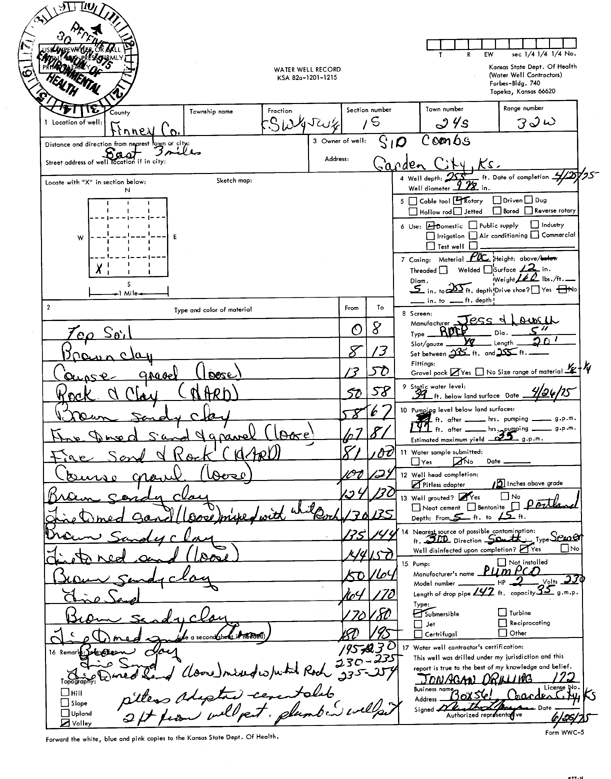 RECEIVED
30 1975
DIVISION OF
ENVIRONMENTAL
HEALTH
WATER WELL RECORD
KSA 82a-1201-1215
T R EW sec 1/4 1/4 1/4 No.
Kansas State Dept. Of Health
(Water Well Contractors)
Forbes-Bldg. 740
Topeka, Kansas 66620
1 Location of well: County Finney Co. Township name Fraction SW¼ SW¼ Section number 15 Town number 24S Range number 32W
Distance and direction from nearest town or city: East 3 miles
Street address of well location if in city:
3 Owner of well: SID Combs
Address: Garden City, Ks.
Locate with "X" in section below: Sketch map:
N
W E
X
S
1 Mile
4 Well depth: 255 ft. Date of completion 4/25/75
Well diameter 9 7/8 in.
5 Cable tool Rotary Driven Dug
Hollow rod Jetted Bored Reverse rotary
6 Use: Domestic Public supply Industry
Irrigation Air conditioning Commercial
Test well
7 Casing: Material PVC Height: above/below
Threaded Welded Surface 12 in.
Diam. Weight 160 lbs./ft.
5 in. to 255 ft. depth Drive shoe? Yes No
in. to ft. depth
2 Type and color of material From To
Top Soil 0 8
Brown clay 8 13
Course gravel (loose) 13 50
Rock & Clay (HARD) 50 58
Brown sandy clay 58 67
Fine to med sand & gravel (loose) 67 81
Fine Sand & Rock (HARD) 81 100
Course gravel (loose) 100 124
Brown sandy clay 124 130
Fine to med sand (loose) mixed with white Rock 130 135
Brown Sandy clay 135 144
Fine to med sand (loose) 144 150
Brown Sandy clay 150 164
Fine Sand 164 170
Brown sandy clay 170 180
Fine to med 180 195
8 Screen:
Manufacturer Jess & Lowell
Type Dia. 5"
Slot/gauze 1/8 Length 20'
Set between 235 ft. and 255 ft.
Fittings:
Gravel pack Yes No Size range of material 1/8-1/4
9 Static water level:
39 ft. below land surface Date 4/26/75
10 Pumping level below land surfaces:
ft. after hrs. pumping g.p.m.
ft. after hrs. pumping g.p.m.
Estimated maximum yield 35 g.p.m.
11 Water sample submitted:
Yes No Date
12 Well head completion:
Pitless adapter 12 Inches above grade
13 Well grouted? Yes No
Neat cement Bentonite Portland
Depth: From 5 ft. to 15 ft.
14 Nearest source of possible contamination:
ft. 300 Direction South Type Sewer
Well disinfected upon completion? Yes No
15 Pump: Not installed
Manufacturer's name PUMPCO
Model number HP 2 Volts 230
Length of drop pipe 147 ft. capacity 35 g.m.p.
Type:
Submersible Turbine
Jet Reciprocating
Certrifugal Other
16 Remarks: Brown clay 195-230
Fine Sand 230-235
Fine to med Sand (loose) mixed w/white Rock 235-254
Topography:
Hill
Slope
Upland
Valley
pitless adapter - cement slab
2 ft from well pit. plumb in well pit
17 Water well contractor's certification:
This well was drilled under my jurisdiction and this
report is true to the best of my knowledge and belief.
JONAGAN DRILLING 172
Business name License No.
Address Box 561 Garden City, Ks
Signed Date 6/25/75
Authorized representative
Forward the white, blue and pink copies to the Kansas State Dept. Of Health.
Form WWC-5